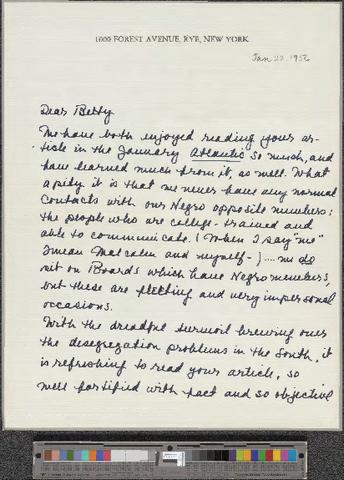 1000 FOREST AVENUE, RYE, NEW YORK
Jan 22. 1956
Dear Betty
We have both enjoyed reading your ar-
ticle in the January Atlantic so much, and
have learned much from it, as well. What
a pity it is that we never have any normal
contacts with our Negro opposite members:
the people who are college-trained and
able to communicate. (When I say "we"
I mean Malcolm and myself-) .... we do
sit on Boards which have Negro members,
but these are fleeting and very impersonal
occasions.
With the dreadful turmoil brewing over
the desegregation problems in the South, it
is refreshing to read your article, so
well fortified with fact and so objective